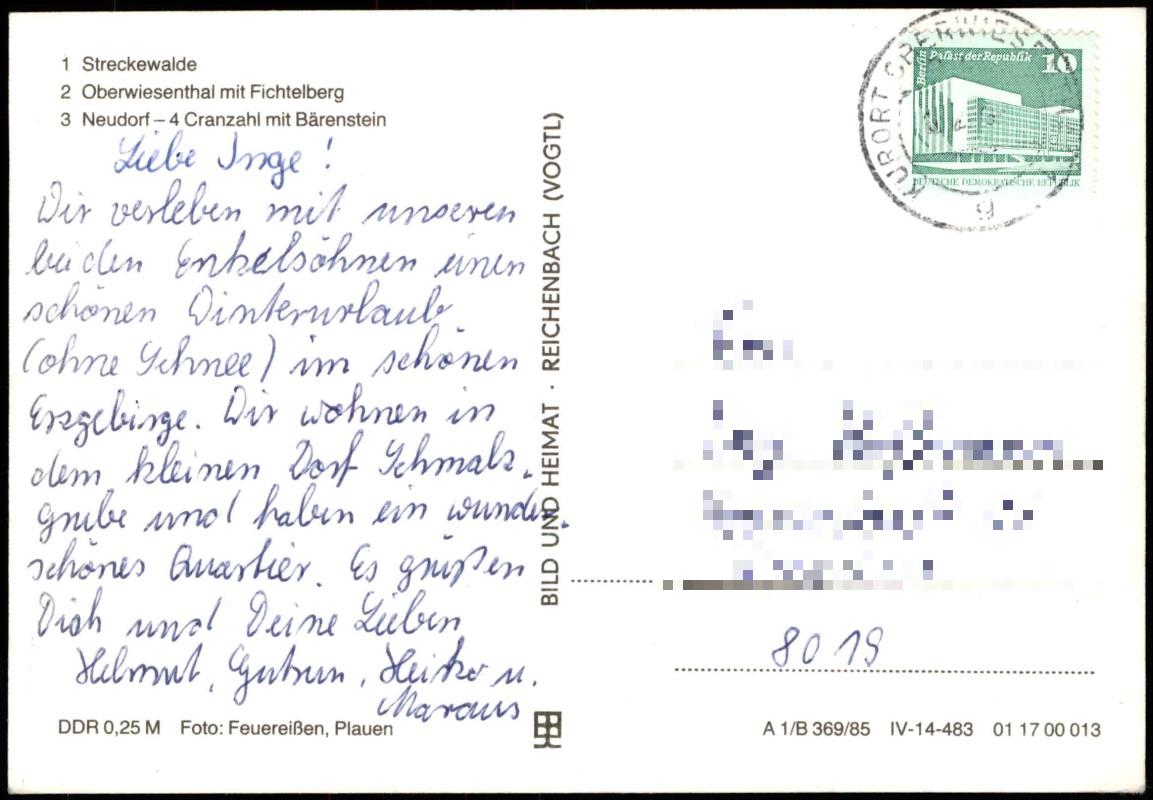 1 Streckewalde
2 Oberwiesenthal mit Fichtelberg
3 Neudorf – 4 Cranzahl mit Bärenstein
Liebe Inge!
Wir verleben mit unseren
beiden Enkelsöhnen einen
schönen Winterurlaub
(ohne Schnee) im schönen
Erzgebirge. Wir wohnen in
dem kleinen Dorf Schmalz-
grube und haben ein wunder-
schönes Quartier. Es grüßen
Dich und Deine Lieben
Helmut, Gutrun, Heiko u.
Marcus
DDR 0,25 M Foto: Feuereißen, Plauen
BILD UND HEIMAT · REICHENBACH (VOGTL)
KURORT OBERWIESENTHAL
Berlin
Palast der Republik
10
DEUTSCHE DEMOKRATISCHE REPUBLIK
8019
A 1/B 369/85 IV-14-483 01 17 00 013